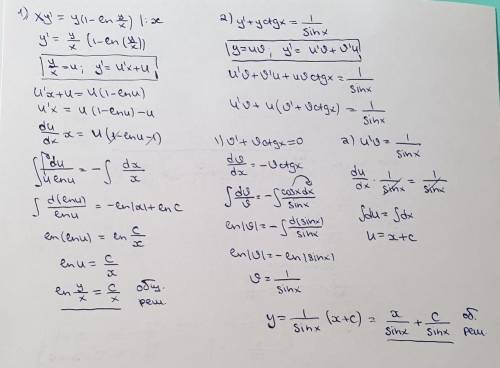 1) xy' = y(1-ln y/x) |: x
y' = y/x (1-ln(y/x))
y/x = u; y' = u'x+u
u'x+u = u(1-ln u)
u'x = u(1-ln u)-u
du/dx x = u(1-ln u-1)
∫ du/(u ln u) = -∫ dx/x
∫ d(ln u)/ln u = -ln|x| + ln C
ln(ln u) = ln C/x
ln u = C/x
ln y/x = C/x общ. реш.
2) y' + y ctg x = 1/sinx
y=uϑ, y' = u'ϑ+ϑ'u
u'ϑ+ϑ'u+uϑctgx = 1/sinx
u'ϑ + u(ϑ'+ϑctgx) = 1/sinx
1) ϑ'+ϑctgx=0
dϑ/dx = -ϑctgx
∫ dϑ/ϑ = -∫ cosx dx/sinx
ln|ϑ| = -∫ d(sinx)/sinx
ln|ϑ| = -ln|sinx|
ϑ = 1/sinx
2) u'ϑ = 1/sinx
du/dx · 1/sinx = 1/sinx
∫du = ∫dx
u = x+c
y = 1/sinx (x+c) = x/sinx + c/sinx об. реш.